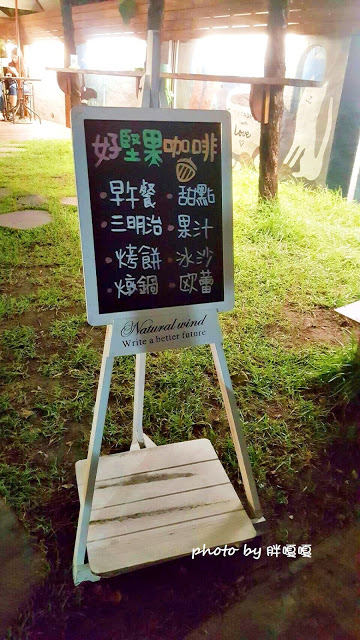 好堅果咖啡
・早午餐 ・甜點
・三明治 ・果汁
・烤餅 ・冰沙
・燉鍋 ・歐蕾
Natural wind
Write a better future
love
photo by 胖嘎嘎